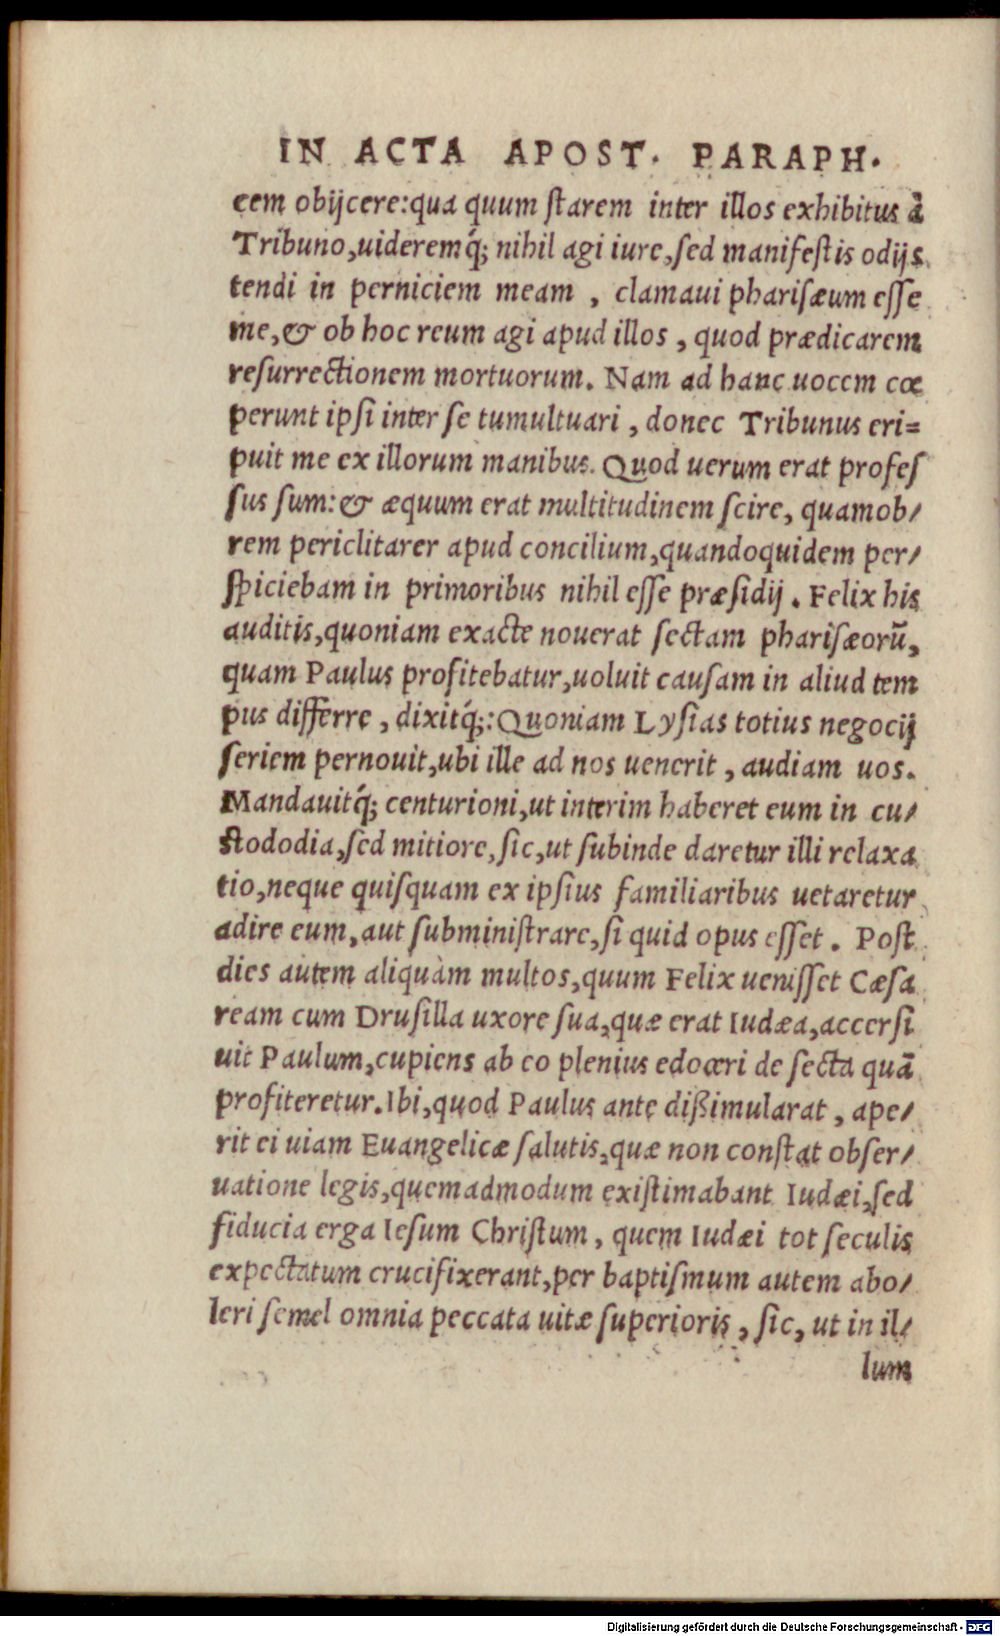 IN ACTA APOST. PARAPH.
cem obijcere:qua quum ſtarem inter illos exhibitus à
Tribuno,uideremq́; nihil agi iure,ſed manifeſtis odijs
tendi in perniciem meam , clamaui phariſæum eſſe
me,& ob hoc reum agi apud illos , quod prædicarem
reſurrectionem mortuorum. Nam ad hanc uocem cœ
perunt ipſi inter ſe tumultuari , donec Tribunus eri=
puit me ex illorum manibus. Quod uerum erat profeſ
ſus ſum: & æquum erat multitudinem ſcire, quamob/
rem periclitarer apud concilium,quandoquidem per/
ſpiciebam in primoribus nihil eſſe præſidij . Felix his
auditis,quoniam exacte nouerat ſectam phariſæorū,
quam Paulus profitebatur,uoluit cauſam in aliud tem
pus differre , dixitq́;:Quoniam Lyſias totius negocij
ſeriem pernouit,ubi ille ad nos uenerit , audiam uos.
Mandauitq́; centurioni,ut interim haberet eum in cu/
ſtododia,ſed mitiore, ſic,ut ſubinde daretur illi relaxa
tio,neque quiſquam ex ipſius familiaribus uetaretur
adire eum,aut ſubminiſtrare,ſi quid opus eſſet . Poſt
dies autem aliquàm multos,quum Felix ueniſſet Cæſa
ream cum Druſilla uxore ſua,quæ erat Iudæa,accerſi
uit Paulum,cupiens ab eo plenius edoceri de ſecta quā
profiteretur.Ibi,quod Paulus ante dißimularat , ape/
rit ei uiam Euangelicæ ſalutis,quæ non conſtat obſer/
uatione legis,quemadmodum exiſtimabant Iudæi,ſed
fiducia erga Ieſum Chriſtum , quem Iudæi tot ſeculis
expectatum crucifixerant,per baptiſmum autem abo/
leri ſemel omnia peccata uitæ ſuperioris , ſic, ut in il/
lum
Digitalisierung gefördert durch die Deutsche Forschungsgemeinschaft - DFG